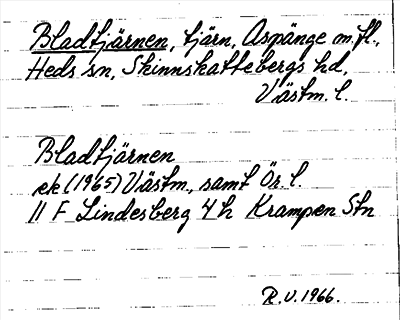 Bladtjärnen, tjärn, Aspänge m.fl.,
Heds sn, Skinnskattebergs hd,
Västm. l.
Bladtjärnen
ek (1965) Västm., samt Ör. l.
11 F Lindesberg 4 h Krampen Stn
R.V. 1966.